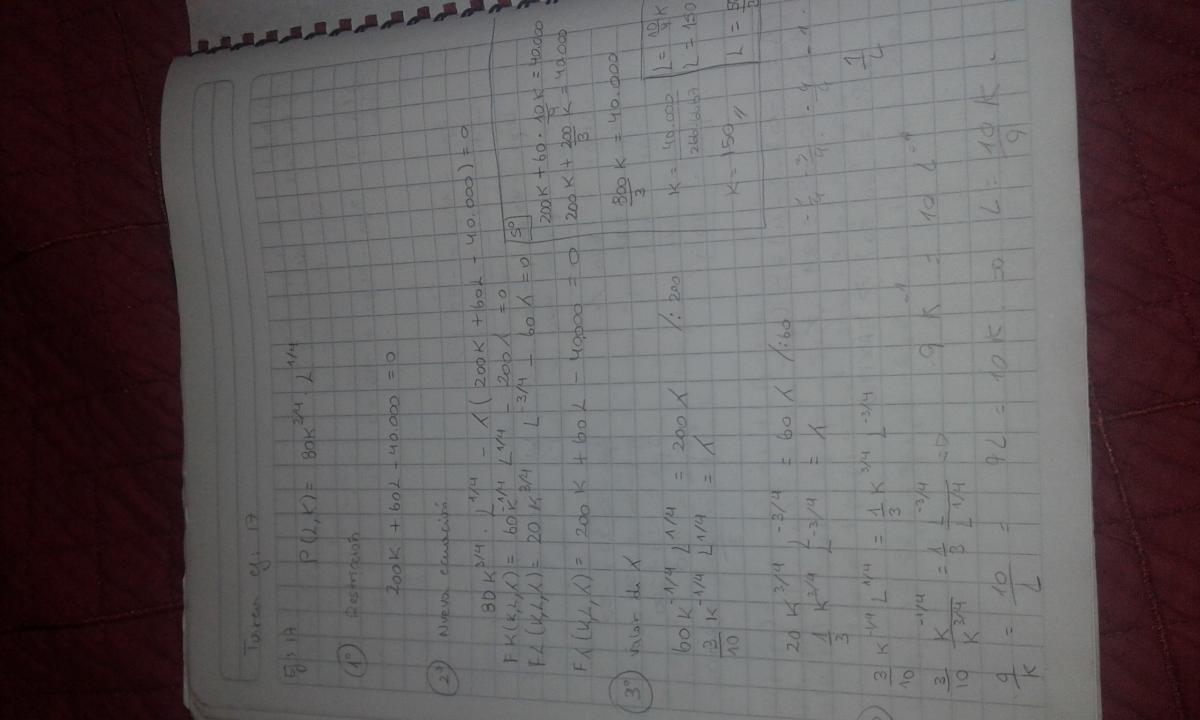 Tarea ej: 17
Ej: 17 P(L,K) = 80K^3/4 . L^1/4
1º Restricción
200K + 60L - 40.000 = 0
2º Nueva ecuación
80K^3/4 . L^1/4 - λ (200K + 60L - 40.000) = 0
FK(K,L,λ) = 60K^-1/4 L^1/4 - 200λ = 0
FL(K,L,λ) = 20K^3/4 . L^-3/4 - 60λ = 0
Fλ(K,L,λ) = 200K + 60L - 40.000 = 0
3º Valor de λ
60K^-1/4 L^1/4 = 200λ /: 200
3/10 K^-1/4 L^1/4 = λ
20 K^3/4 L^-3/4 = 60λ /:60
1/3 K^3/4 L^-3/4 = λ
3/10 K^-1/4 L^1/4 = 1/3 K^3/4 L^-3/4
3/10 K^-1/4 / K^3/4 = 1/3 L^-3/4 / L^1/4 => 9 K^-1 = 10 L^-1
9/K = 10/L = 9L = 10K => L = 10/9 K.
5º
200K + 60 . 10/9 K = 40.000
200K + 200/3 K = 40.000
800/3 K = 40.000
K = 40.000 / 266.6667
K = 150 //
L = 150
-1/4 . -3/4 . -4/4 = -1.
1/L